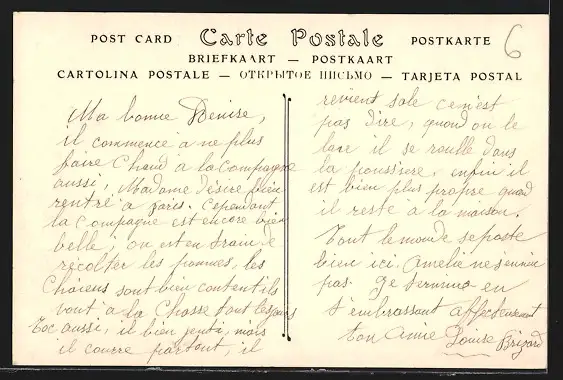 POST CARD Carte Postale POSTKARTE
6
BRIEFKAART — POSTKAART
CARTOLINA POSTALE — ОТКРЫТОЕ ПИСЬМО — TARJETA POSTAL
Ma bonne Denise,
il commence a ne plus
faire Chaud a la Campagne
aussi, Madame désire bien
rentré a Paris. Cependant
la Campagne est encore bien
belle, on est en train de
récolter les pommes, les
Chiens sont bien contents ils
vont à la Chasse tout les jours
Toc aussi, il bien gentil, mais
il courre partout, il
revient sale ce n'est
pas dire, quand on le
lave il se roulle dans
la poussière, enfin il
est bien plus propre quand
il reste a la maison.
Tout le monde se porte
bien ici. Amelie ne s'ennuie
pas. Je termine en
t'embrassant affectueusement
ton Amie Louise Brizard